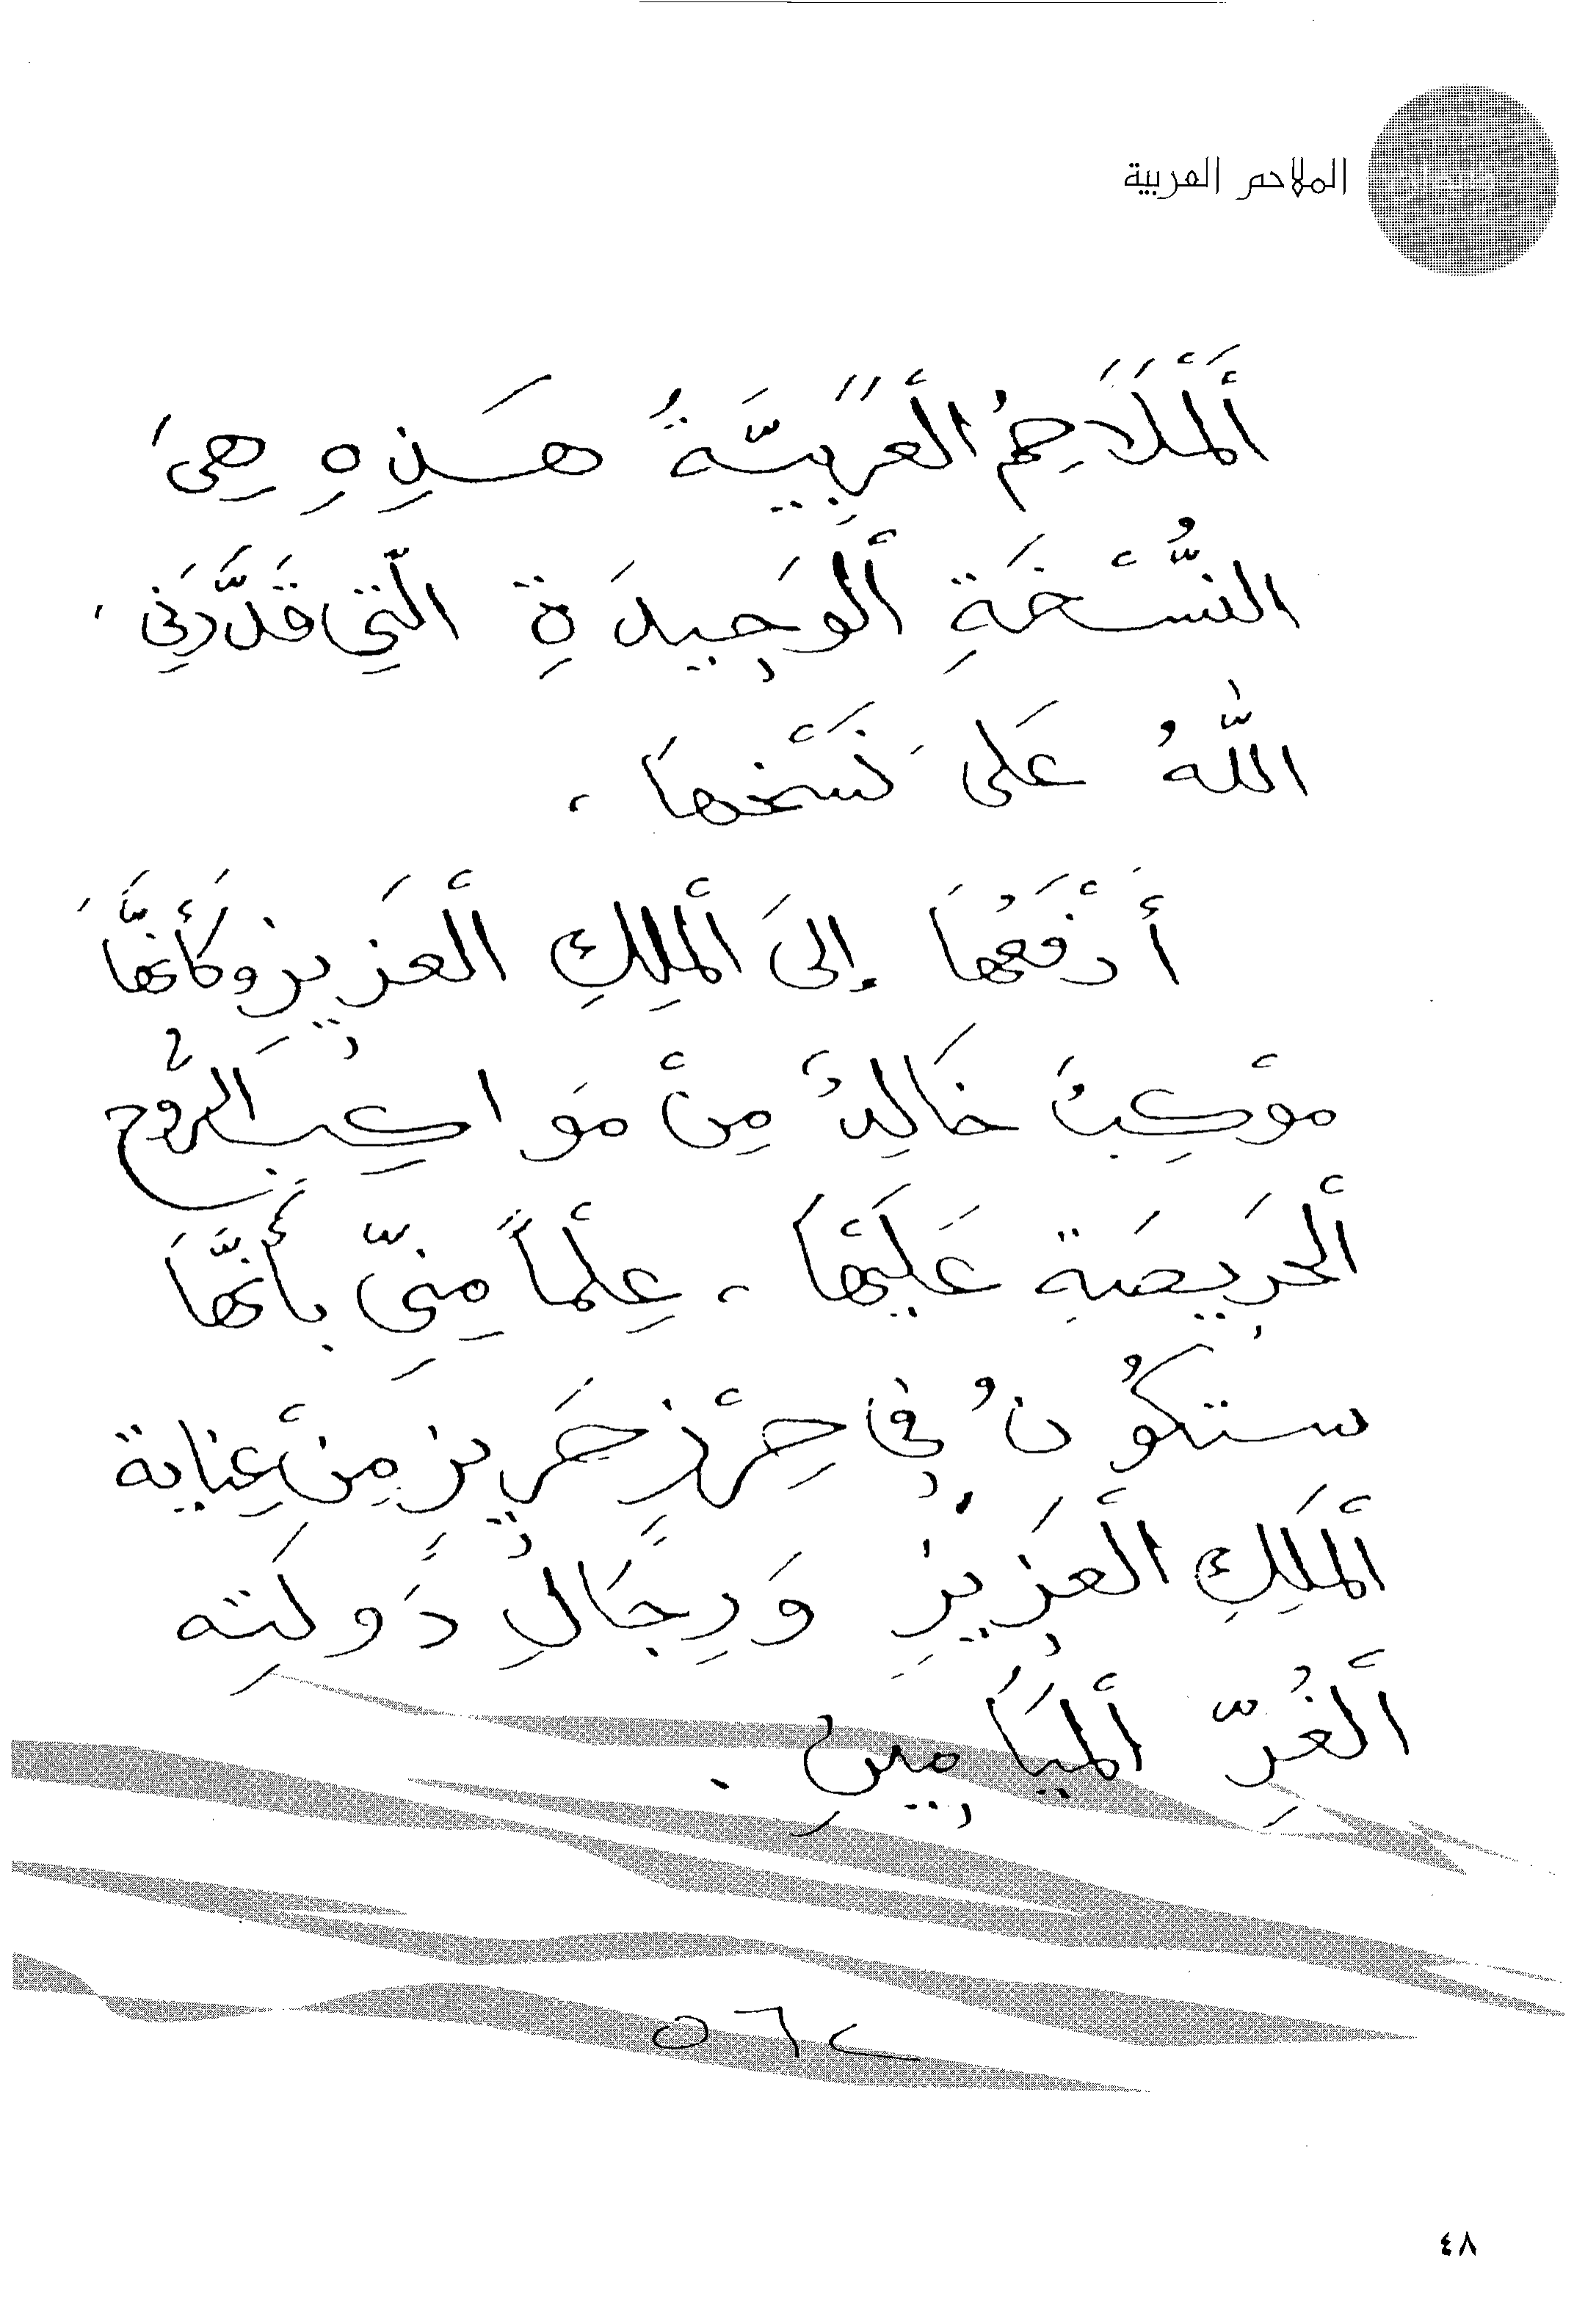 الملاحم العربية
أَلْمَلَاحِمُ الْعَرَبِيَّةُ هَذِهِ هِيَ
النُّسْخَةِ ألْوَحِيدَةِ الَّتِي قَدَّرَنِي
اللّٰهُ عَلَى نَسْخِهَا ،
أَدْفَعُهَا إِلَى ألْمَلِكِ الْعَزِيزِ وَكَأَنَّهَا
مَوْكِبٌ خَالِدٌ مِنْ مَوَاكِبِ الرُّوحِ
ألْحَرِيصَةِ عَلَيْهَا ، عِلْماً مِنِّي بِأَنَّهَا
ستكُونُ فِي حِرْزٍ حَرِيزٍ مِنْ عِنَايَة
ألْمَلِكِ الْعَزِيزِ وَرِجَالِ دَولَتِه
ألْغُرِّ ألْمَيَامِينِ .
٤٨